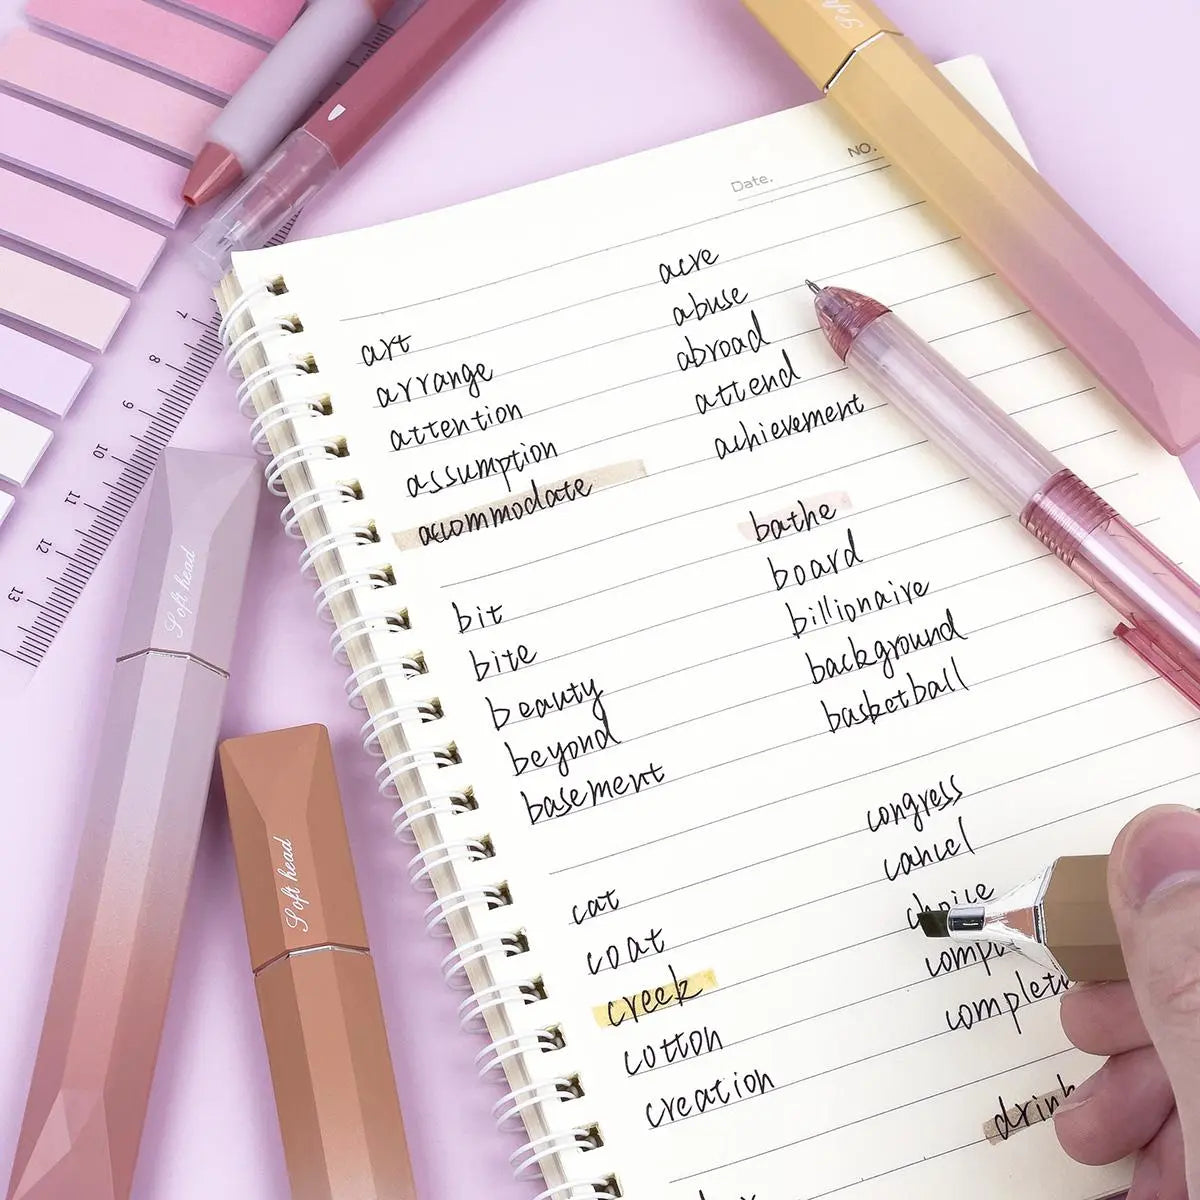 Soft head
Date.
NO.
7
8
9
10
11
12
13
art
arrange
attention
assumption
accommodate
acre
abuse
abroad
attend
achievement
bit
bite
beauty
beyond
basement
bathe
board
billionaire
background
basketball
cat
coat
creek
cotton
creation
congress
cancel
choice
drink
Soft head
Soft head